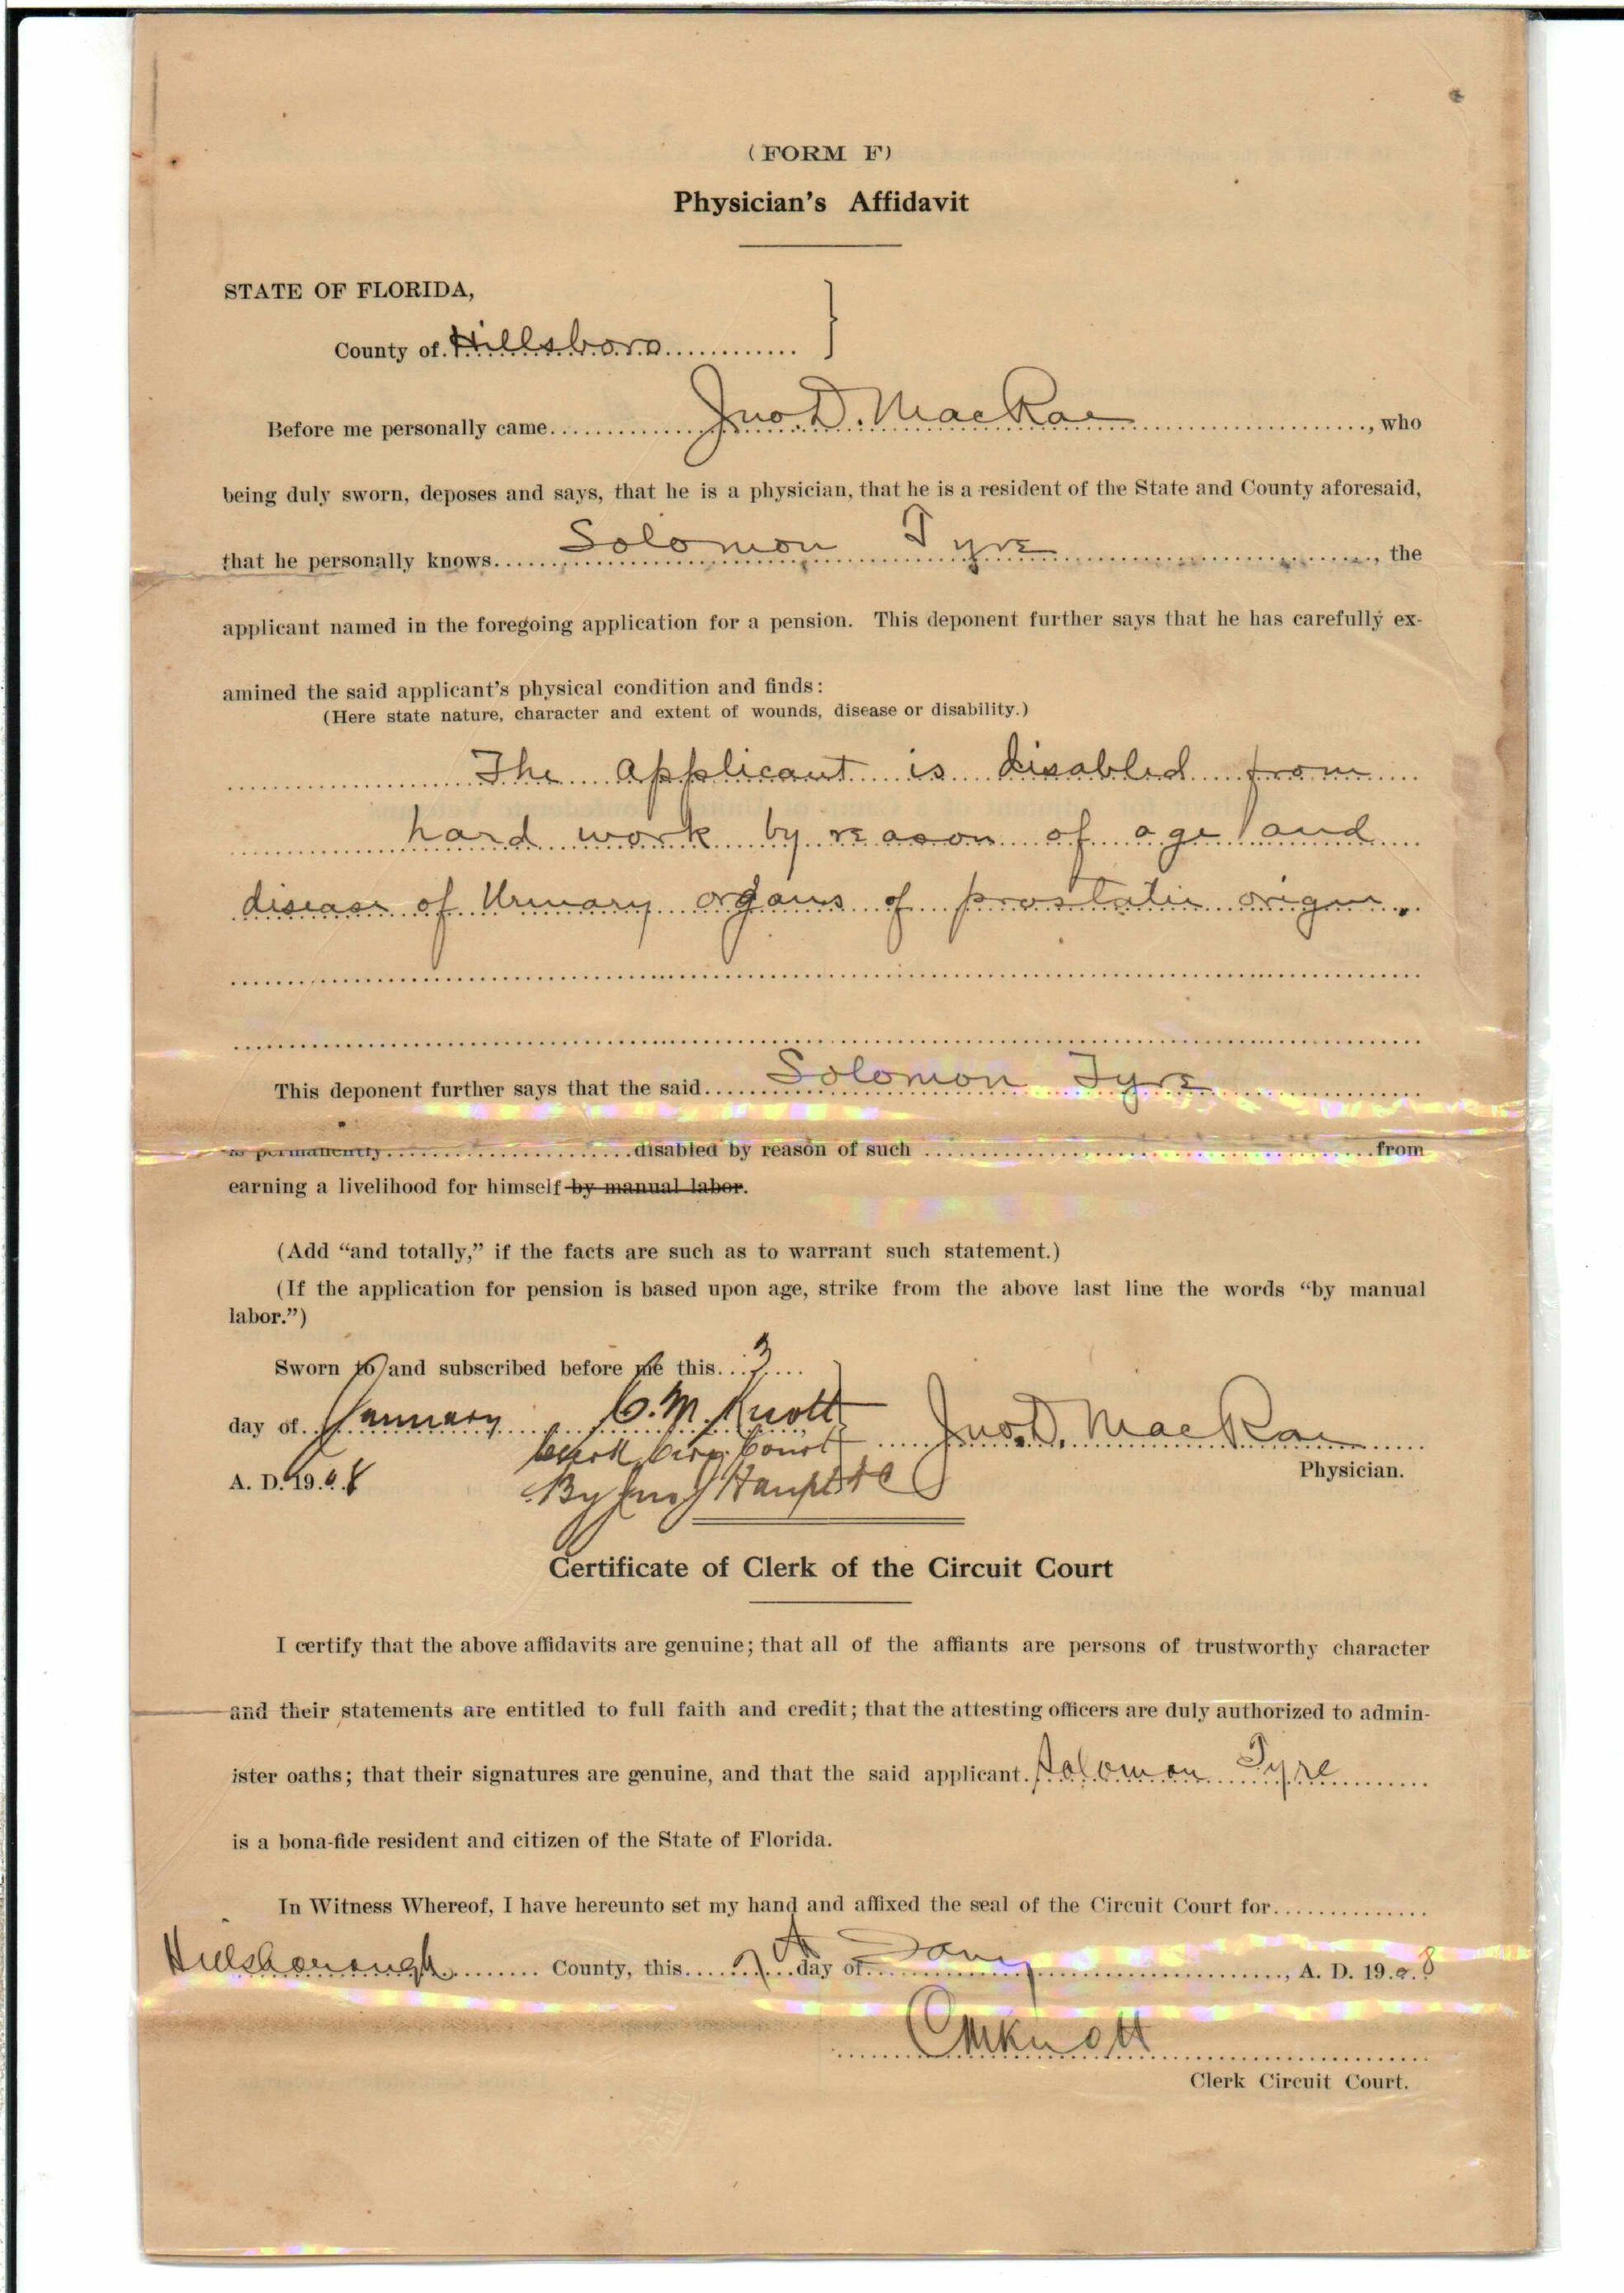 (FORM F)
Physician's Affidavit
STATE OF FLORIDA,
County of Hillsboro }
Before me personally came Jno. D. MacRae, who
being duly sworn, deposes and says, that he is a physician, that he is a resident of the State and County aforesaid,
that he personally knows Solomon Tyre, the
applicant named in the foregoing application for a pension. This deponent further says that he has carefully ex-
amined the said applicant's physical condition and finds:
(Here state nature, character and extent of wounds, disease or disability.)
The applicant is disabled from
hard work by reason of age and
disease of Urinary organs of prostatic origin.
This deponent further says that the said Solomon Tyre
is permanently disabled by reason of such from
earning a livelihood for himself by manual labor.
(Add "and totally," if the facts are such as to warrant such statement.)
(If the application for pension is based upon age, strike from the above last line the words "by manual
labor.")
Sworn to and subscribed before me this 3
day of January C. M. Knott Jno. D. MacRae
Clerk Circ. Court
Physician.
A. D. 1908 By Jno
Certificate of Clerk of the Circuit Court
I certify that the above affidavits are genuine; that all of the affiants are persons of trustworthy character
and their statements are entitled to full faith and credit; that the attesting officers are duly authorized to admin-
ister oaths; that their signatures are genuine, and that the said applicant Solomon Tyre
is a bona-fide resident and citizen of the State of Florida.
In Witness Whereof, I have hereunto set my hand and affixed the seal of the Circuit Court for
Hillsborough County, this day of Jany, A. D. 1908
C M Knott
Clerk Circuit Court.